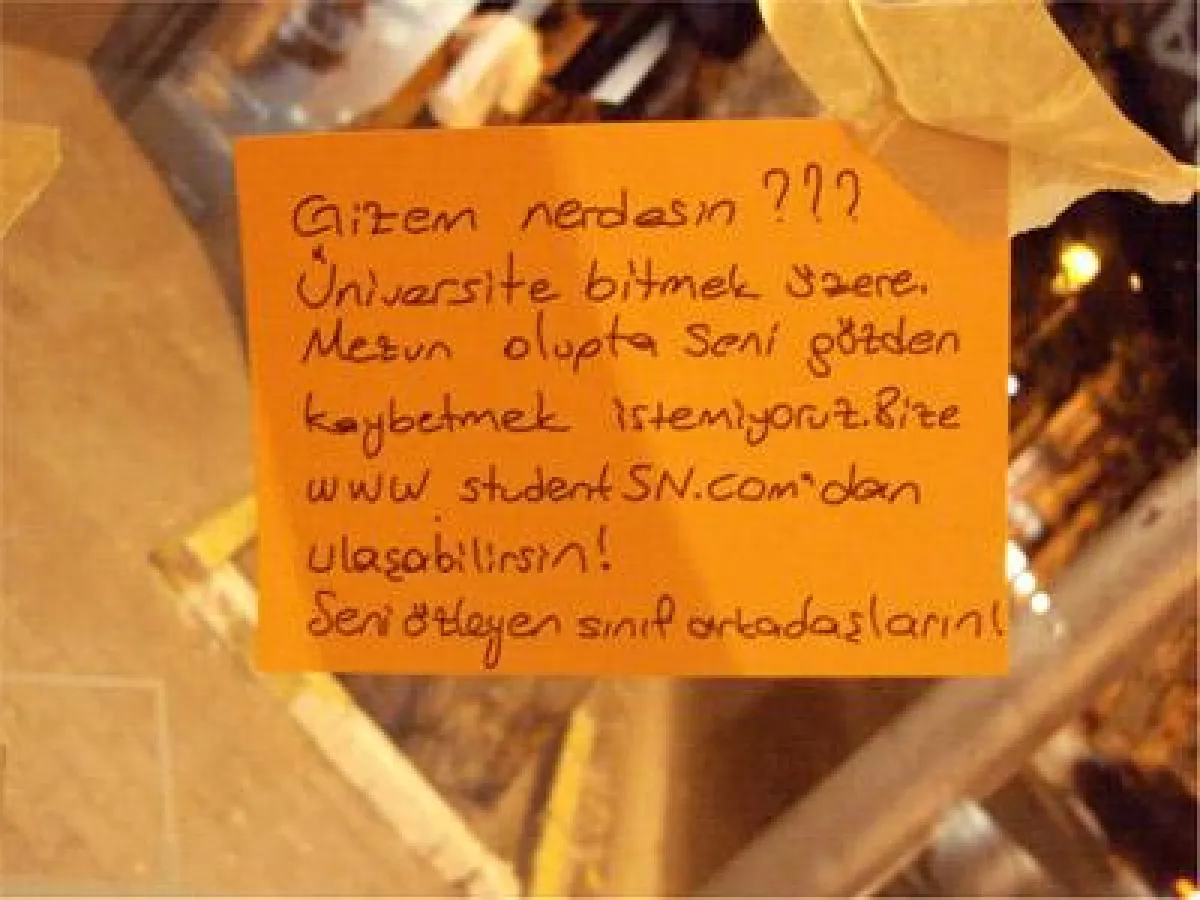 Gizem nerdesin ???
Üniversite bitmek üzere.
Mezun olupta seni gözden
kaybetmek istemiyoruz.Bize
www.studentSN.com'dan
ulaşabilirsin!
Seni özleyen sınıf arkadaşların!